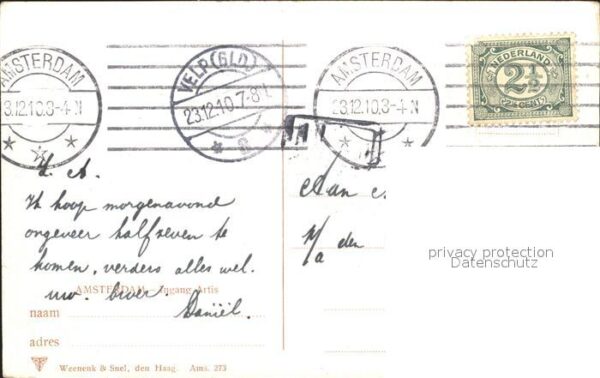 AMSTERDAM
23.12.10.3-4 N
VELP (GLD.)
23.12.10.7-8 N
AMSTERDAM
23.12.10.3-4 N
NEDERLAND
2½
CENT
L. A.
Ik hoop morgenavond
ongeveer half zeven te
komen, verders alles wel.
uw. broer.
Daniël.
AMSTERDAM — Ingang Artis
naam
adres
Weenenk & Snel, den Haag. Ams. 273
Aan
den
privacy protection
Datenschutz